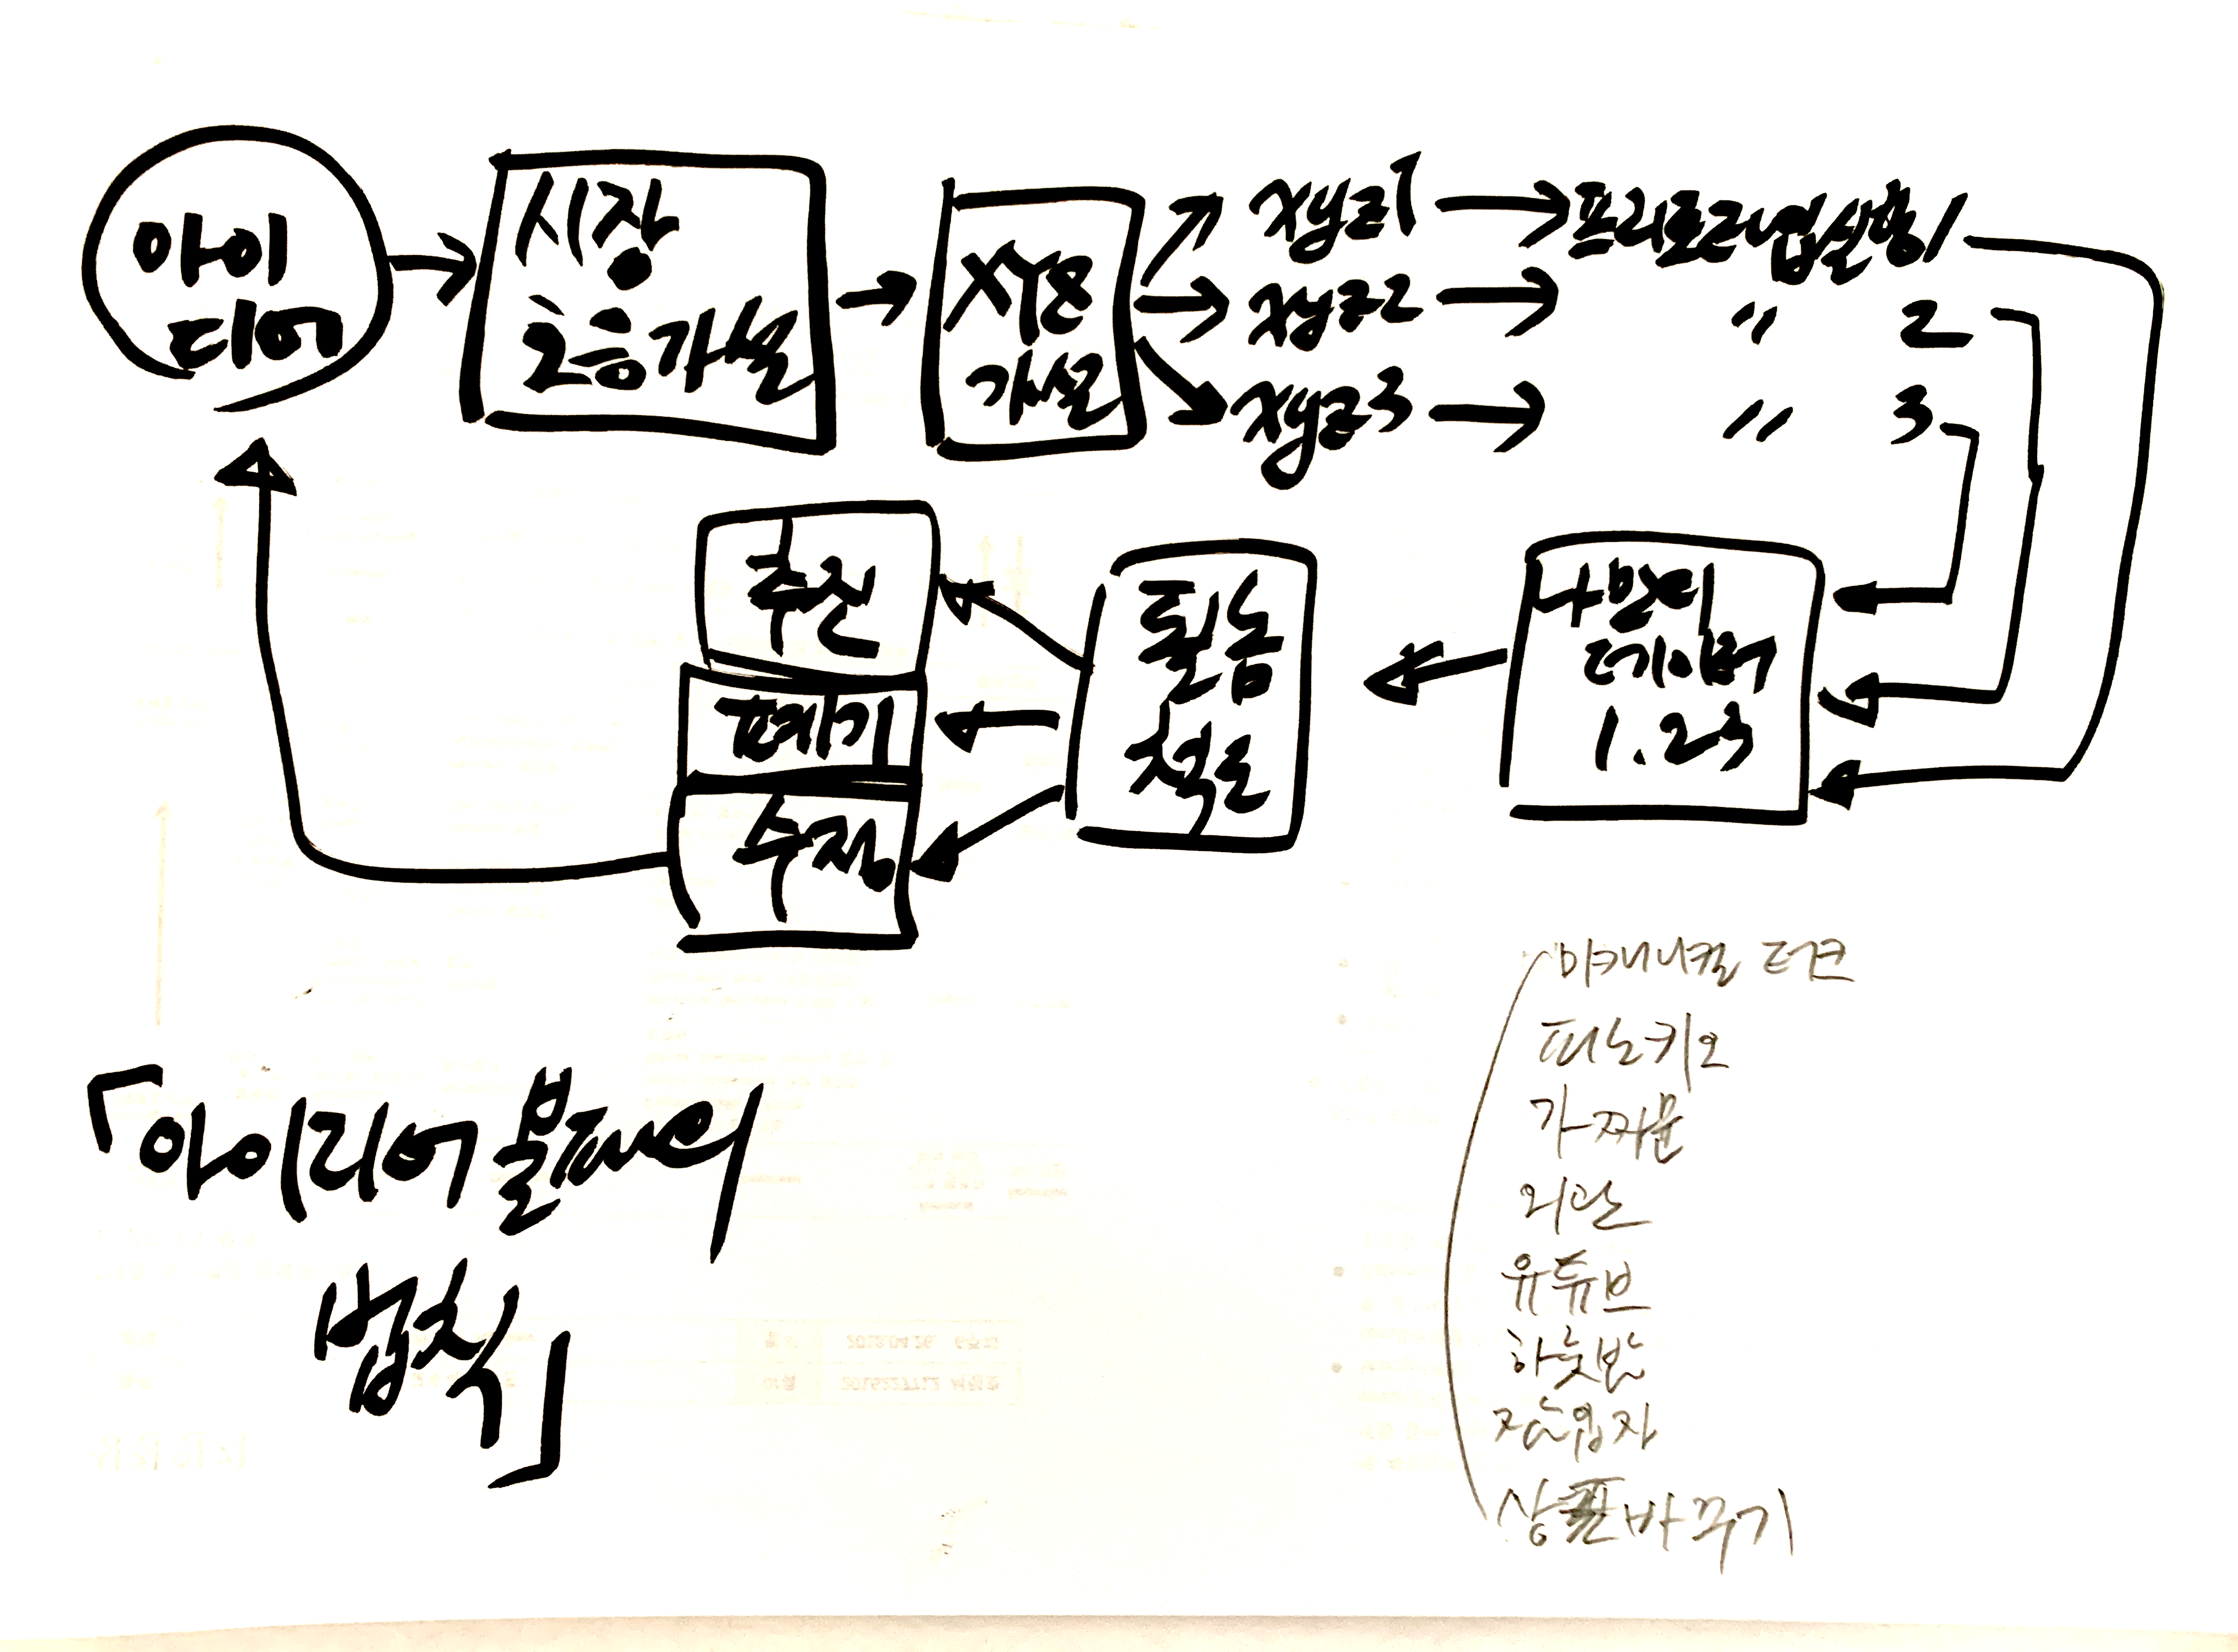 아이
디어
시장
호응가설
XYZ
가설
xyz1
프리토타입실험1
xyz2
〃 2
xyz3
〃 3
나만의
데이터
1.2.3
필승
척도
추진
폐기
수정
「아이디어 불패의
법칙」
미캐니컬 터크
피노키오
가짜문
외관
유튜브
하룻밤
잠입자
상표바꾸기